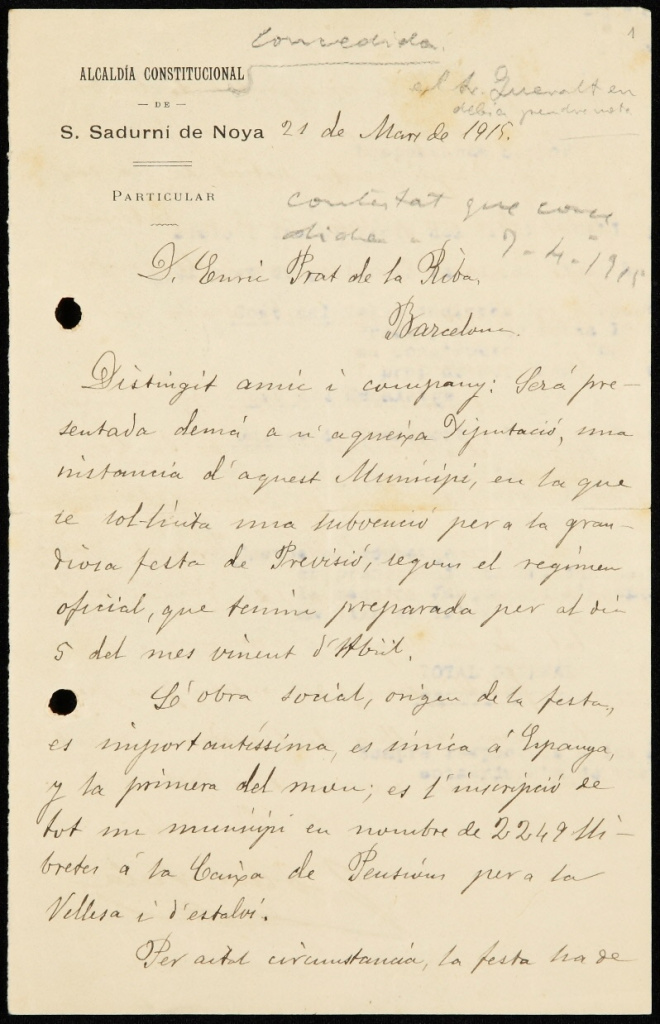 1
Concedida
el Sr. Queralt en
debia pendre nota
ALCALDÍA CONSTITUCIONAL
— DE —
S. Sadurní de Noya 21 de Mars de 1915.
PARTICULAR
contestat que conce
dida 7-4-1915
D. Enric Prat de la Riba,
Barcelona.
Distingit amic i company: Será pre-
sentada demá a n'aqueixa Diputació, una
instancia d'aquest Municipi, en la que
se sol-licita una subvenció per a la gran-
diosa festa de Previsió, segons el regimen
oficial, que tenim preparada per al dia
5 del mes vinent d'Abril.
L'obra social, origen de la festa,
es importantíssima, es única á Espanya,
y la primera del mon; es l'inscripció de
tot un municipi en nombre de 2249 lli-
bretes á la Caixa de Pensions per a la
Vellesa i d'estalvi.
Per aital circumstancia, la festa ha de